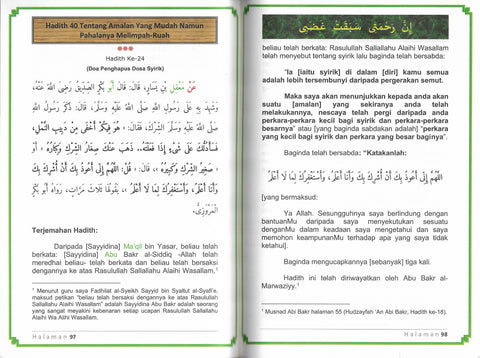 Hadith 40 Tentang Amalan Yang Mudah Namun
Pahalanya Melimpah-Ruah
Hadith Ke-24
(Doa Penghapus Dosa Syirik)
عَنْ مَعْقِلِ بْنِ يَسَارٍ، قَالَ: قَالَ أَبُو بَكْرٍ الصِّدِّيقُ رَضِيَ اللهُ عَنْهُ،
وَشَهِدَ بِهِ عَلَى رَسُولِ اللهِ صَلَّى اللهُ عَلَيْهِ وَسَلَّمَ، قَالَ: ذَكَرَ رَسُولُ اللهِ
صَلَّى اللهُ عَلَيْهِ وَسَلَّمَ الشِّرْكَ، فَقَالَ: «هُوَ فِيكُمْ أَخْفَى مِنْ دَبِيبِ النَّمْلِ،
فَسَأَدُلُّكَ عَلَى شَيْءٍ إِذَا فَعَلْتَهُ، ذَهَبَ عَنْكَ صِغَارُ الشِّرْكِ وَكِبَارُهُ
- صَغِيرُ الشِّرْكِ وَكَبِيرُهُ -»، قَالَ: «قُلْ: اللَّهُمَّ إِنِّي أَعُوذُ بِكَ أَنْ أُشْرِكَ بِكَ
وَأَنَا أَعْلَمُ، وَأَسْتَغْفِرُكَ لِمَا لَا أَعْلَمُ»، يَقُولُهَا ثَلَاثَ مَرَّاتٍ، رَوَاهُ أَبُو بَكْرٍ
الْمَرْوَزِيُّ.
Terjemahan Hadith:
Daripada [Sayyidina] Ma'qil bin Yasar, beliau telah
berkata: [Sayyidina] Abu Bakr al-Siddiq -Allah telah
meredhai beliau- telah berkata dan beliau telah bersaksi
dengannya ke atas Rasulullah Sallallahu Alaihi Wasallam.¹
¹ Menurut guru saya Fadhilat al-Syeikh Sayyid bin Syaltut al-Syafi'e,
maksud petikan "beliau telah bersaksi dengannya ke atas Rasulullah
Sallallahu Alaihi Wasallam" adalah Sayyidina Abu Bakr adalah seorang
yang sangat meyakini kebenaran setiap ucapan Rasulullah Sallallahu
Alaihi Wasallam.
Halaman 97
إِنَّ رَحْمَتِي سَبَقَتْ غَضَبِي
beliau telah berkata: Rasulullah Sallallahu Alaihi Wasallam
telah menyebut tentang syirik lalu baginda telah bersabda:
"Ia [iaitu syirik] di dalam [diri] kamu semua
adalah lebih tersembunyi daripada pergerakan semut.
Maka saya akan menunjukkan kepada anda akan
suatu [amalan] yang sekiranya anda telah
melakukannya, nescaya telah pergi daripada anda
perkara-perkara kecil bagi syirik dan perkara-perkara
besarnya" atau [yang baginda sabdakan adalah] "perkara
yang kecil bagi syirik dan perkara yang besar baginya".
Baginda telah bersabda: "Katakanlah:
اللَّهُمَّ إِنِّي أَعُوذُ بِكَ أَنْ أُشْرِكَ بِكَ وَأَنَا أَعْلَمُ، وَأَسْتَغْفِرُكَ لِمَا لَا أَعْلَمُ
[yang bermaksud:
Ya Allah. Sesungguhnya saya berlindung dengan
bantuanMu daripada saya menyekutukan sesuatu
denganMu dalam keadaan saya mengetahui dan saya
memohon keampunanMu terhadap apa yang saya tidak
ketahui].
Baginda mengucapkannya [sebanyak] tiga kali.
Hadith ini telah diriwayatkan oleh Abu Bakr al-
Marwaziyy.¹
¹ Musnad Abi Bakr halaman 55 (Hudzayfah 'An Abi Bakr, Hadith ke-18).
Halaman 98